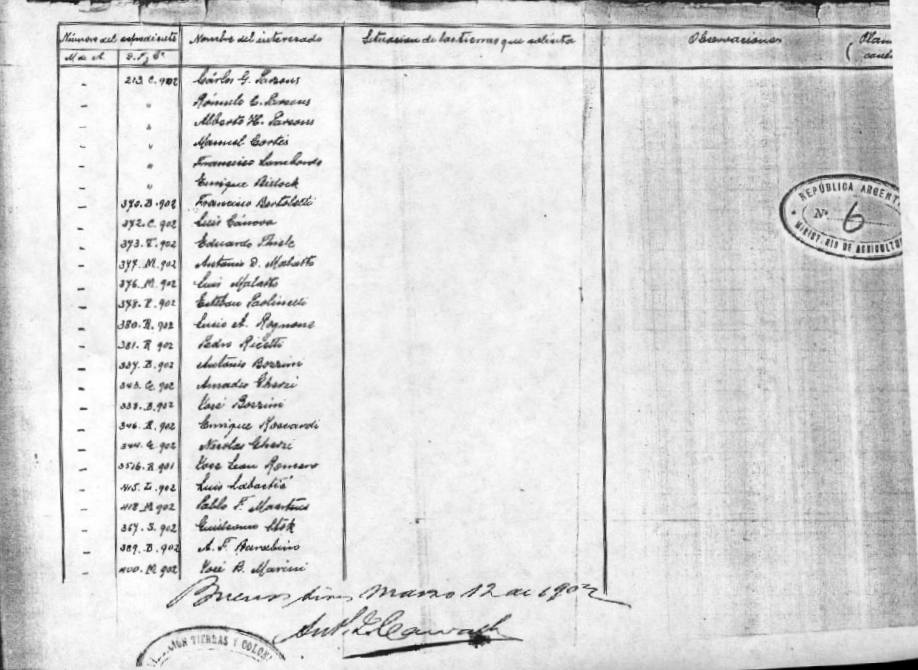 Número del expediente Nombre del interesado Situacion de las tierras que solicita Observaciones
M de A. D. T. y C.
213. C. 902 Cárlos G. Parsons
" Rómulo C. Parsons
" Alberto H. Parsons
" Manuel Cortés
" Francisco Lombardo
" Enrique
370. B. 902 Francisco Bertoletti
372. C. 902 Luis Cánova
373. T. 902 Eduardo Thiele
377. M. 902 Antonio D. Malatto
376. M. 902 Luis Malatto
378. P. 902 Esteban Paolinelli
380. R. 902 Lucio A. Rognone
381. R 902 Pedro Ricetti
337. B. 902 Antonio Bozzini
343. G. 902 Amadeo Gherzi
338. B. 902 José Bozzini
346. R. 902 Enrique
344. G. 902 Nicolas Gherzi
3516. R. 901 José Leon Romero
415. L. 902 Luis Labartié
418. M. 902 Pablo F. Martinez
367. S. 902 Guillermo
389. B. 902 A. F. Barabino
400. M. 902 José B. Marini
REPÚBLICA ARGENT
Nº 6
MINISTERIO DE AGRICULTUR
Buenos Aires Marzo 12 de 1902
TIERRAS Y COLON